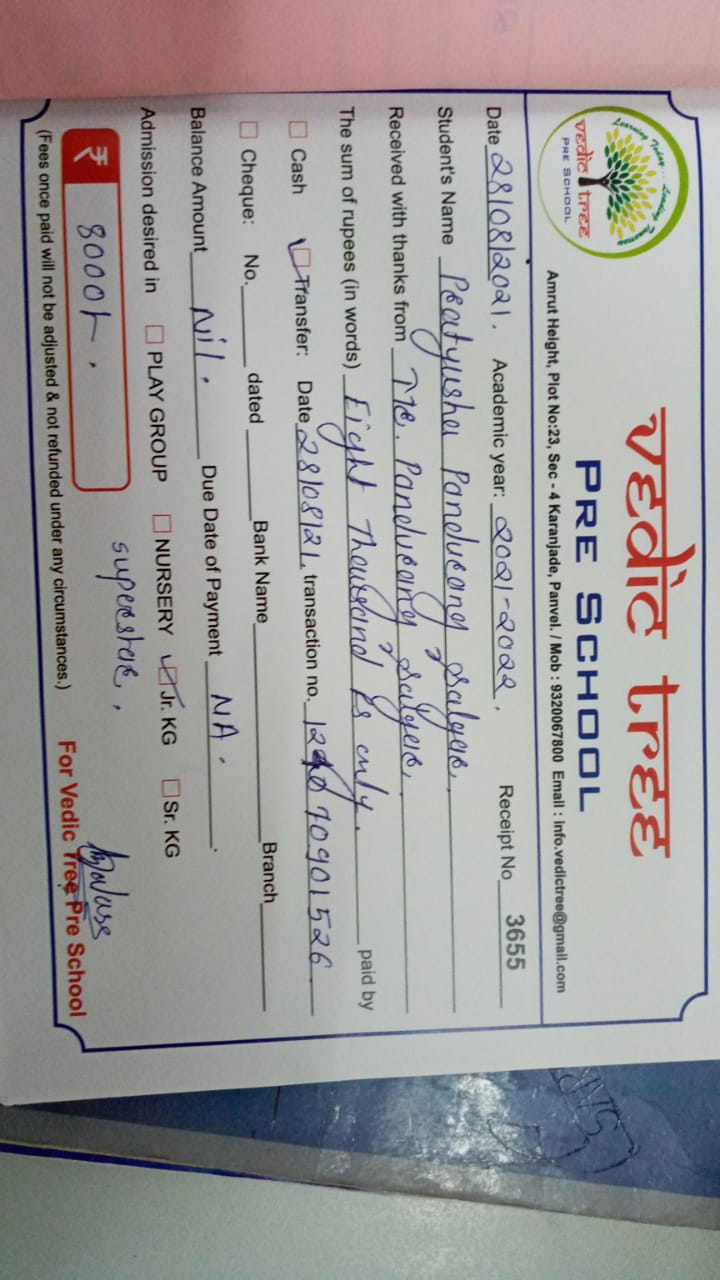 Learning Today... Leading Tomorrow
vedic tree
PRE SCHOOL
vedic tree
PRE SCHOOL
Amrut Height, Plot No:23, Sec - 4 Karanjade, Panvel. / Mob : 9320067800 Email : info.vedictree@gmail.com
Date 28/08/2021. Academic year: 2021-2022. Receipt No 3655
Student's Name Pratyusha Pandurang Salgar.
Received with thanks from Mr. Pandurang Salgar.
The sum of rupees (in words) Eight Thousand Rs only. paid by
Cash Transfer: Date 28/08/21. transaction no.
Cheque: No. dated Bank Name Branch
Balance Amount Nil. Due Date of Payment NA.
Admission desired in PLAY GROUP NURSERY Jr. KG Sr. KG
superstar.
₹ 8000/-.
(Fees once paid will not be adjusted & not refunded under any circumstances.)
For Vedic Tree Pre School